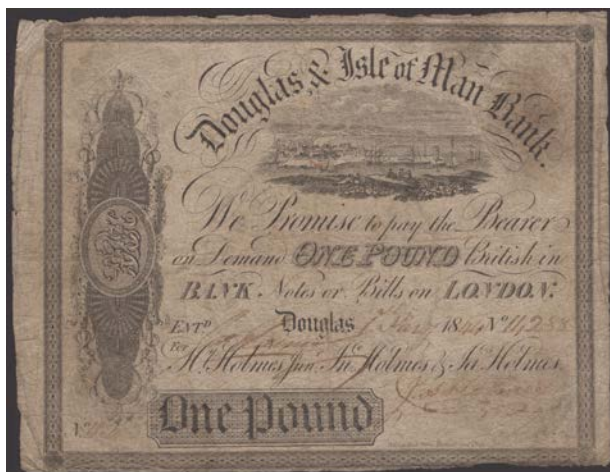 Douglas & Isle of Man Bank.
We Promise to pay the Bearer
on Demand ONE POUND British in
BANK Notes or Bills on LONDON.
ENTD Douglas 1 18 No
For Hy. Holmes Junr. Jno. Holmes & Jas. Holmes.
One Pound